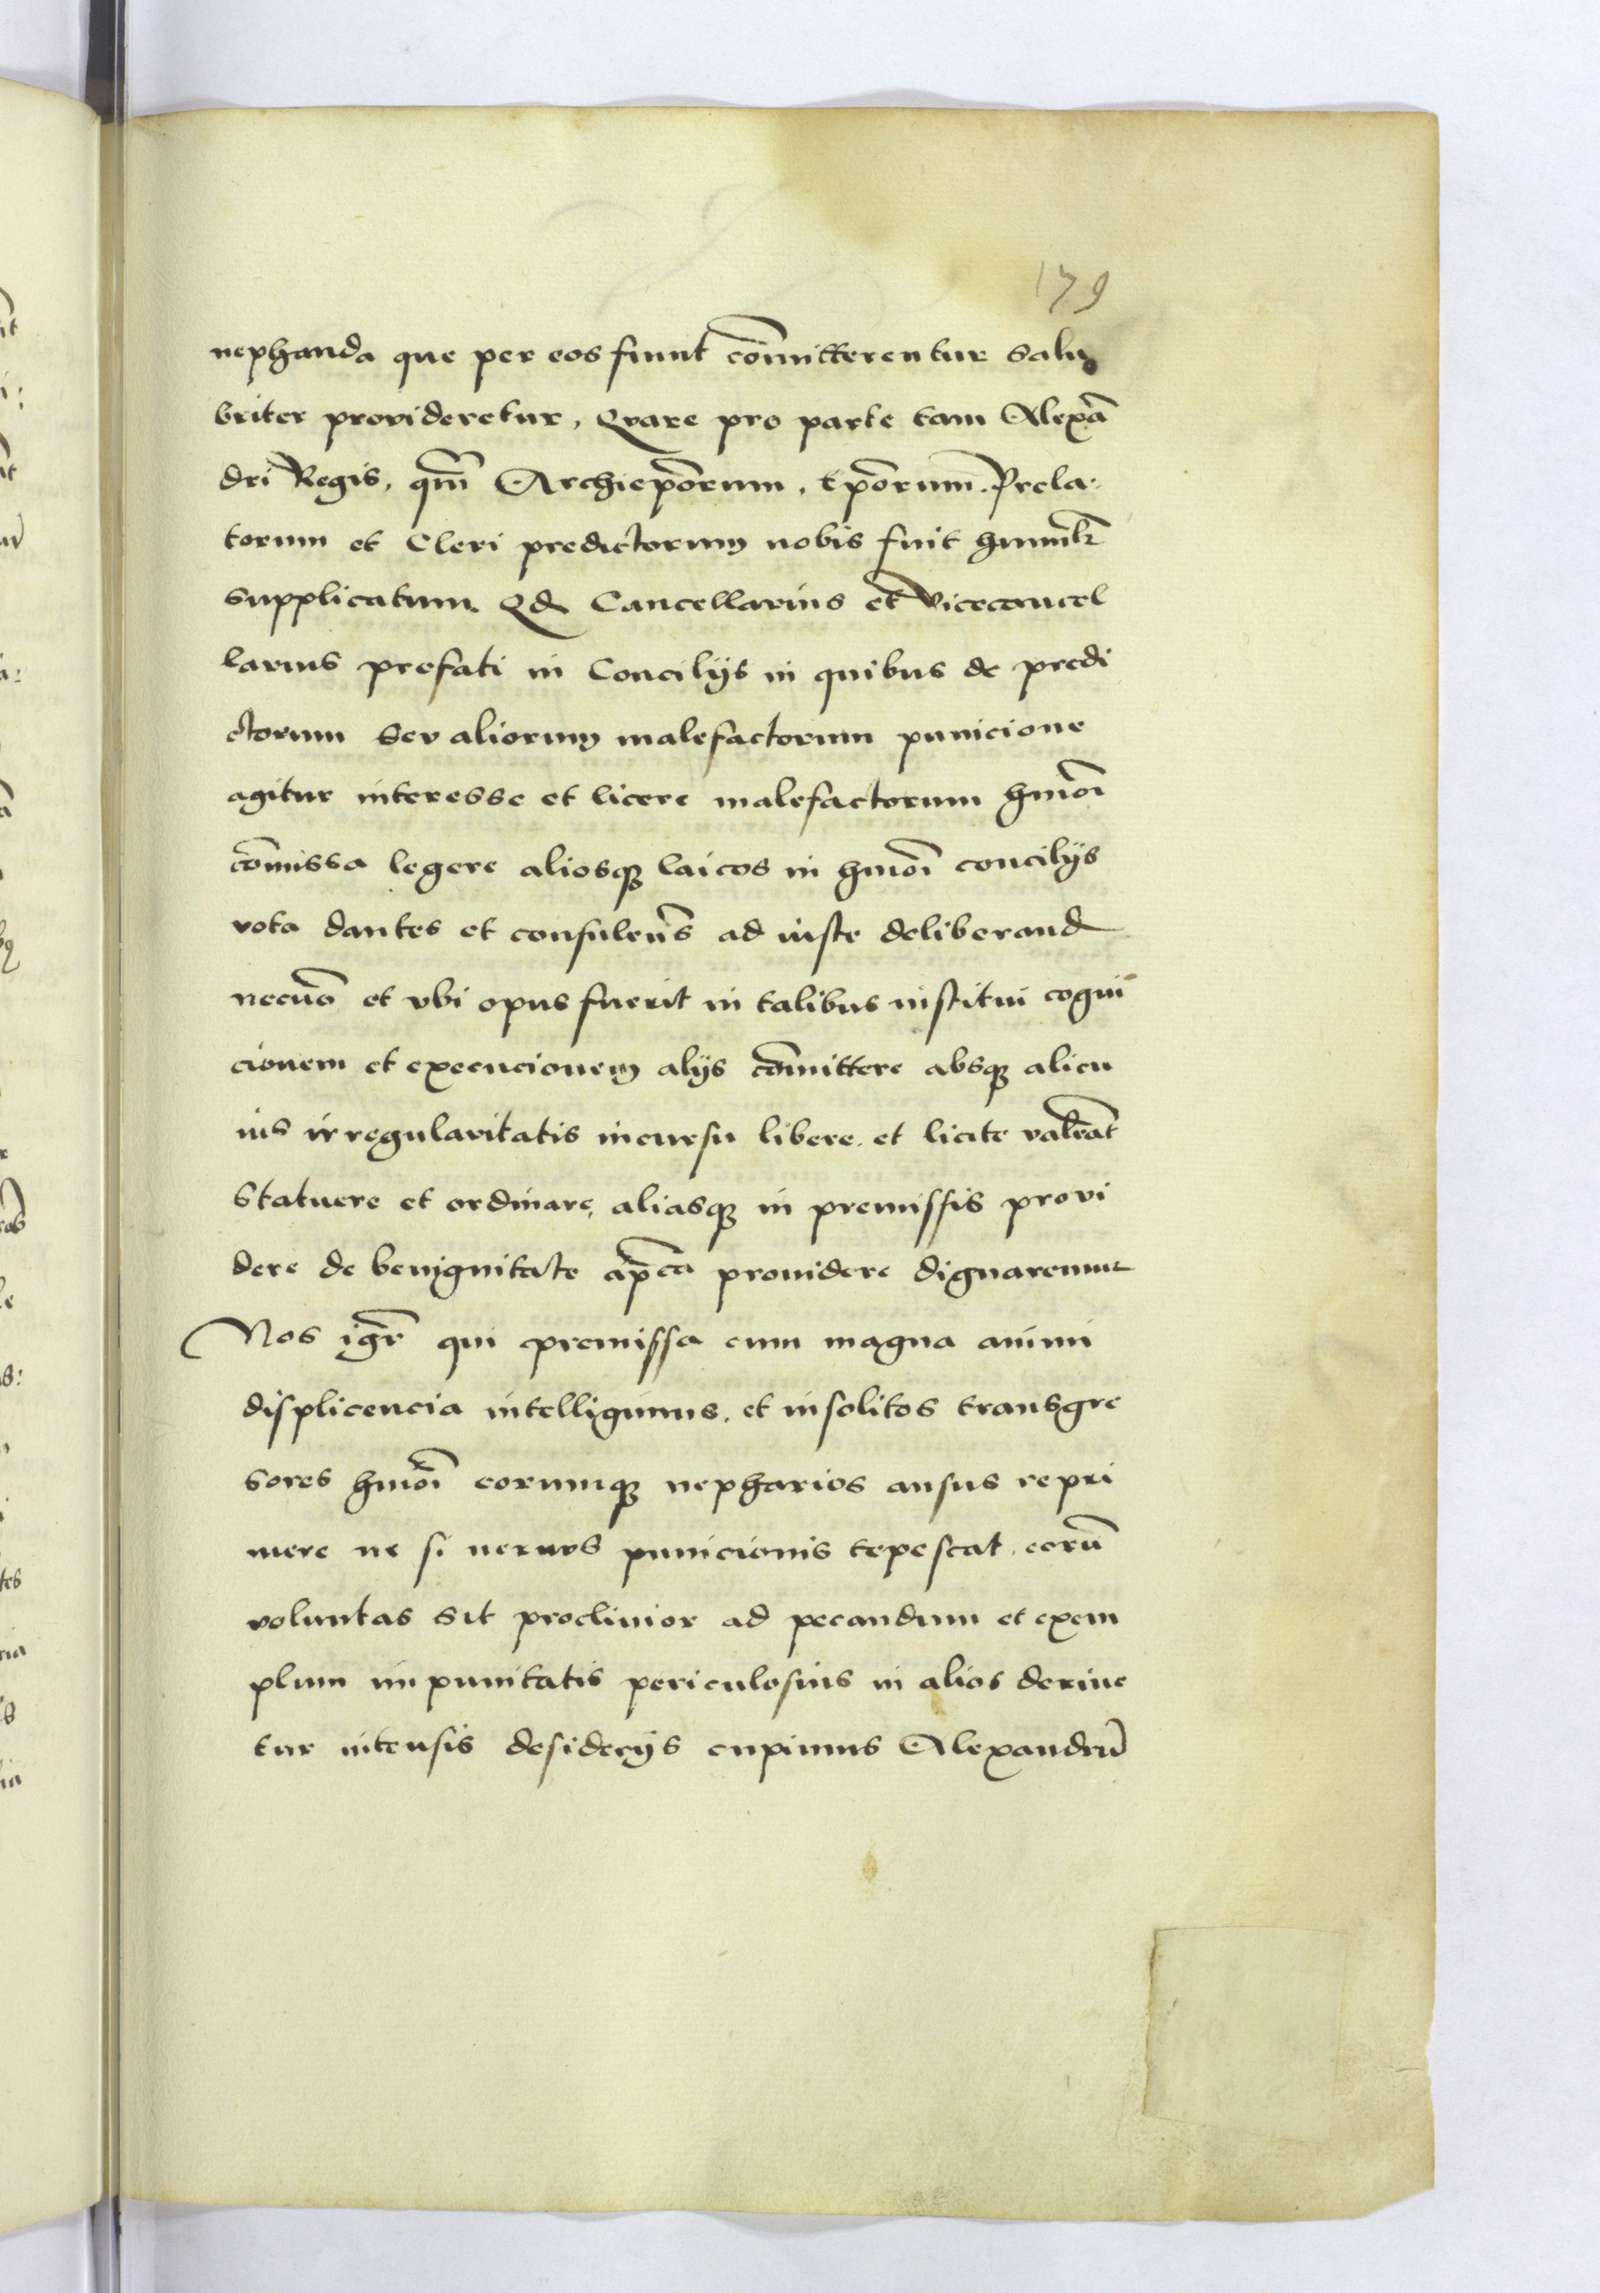 179
nephanda que per eos fiunt cōmitterentur salu
briter provideretur, Qvare pro parte tam Alexā
dri Regis, qm̄ Archiepōrum, Epōrum. Prela-
torum et Cleri predictorum nobis fuit humilr̄
supplicatum Qd Cancellarius et Vicecancel
larius prefati in Concilijs in quibus de predi
ctorum sev aliorum malefactorum punicione
agitur interesse et licere malefactorum hmōi
cōmissa legere aliosqꝫ laicos in hmōi concilijs
vota dantes et consulen̄s ad iuste deliberand
necnō et vbi opus fuerit in talibus institui cogni
cionem et execucionem alijs cōmittere absqꝫ alicu
ius irregularitatis incursu libere et licite valeāt
statuere et ordinare, aliasqꝫ in premissis provi
dere de benignitate ap̄ca prouidere dignaremur
Nos igr̄ qui premissa cum magna animi
displicencia intelligimus, et insolitos transgre
sores hmōi eorumqꝫ nepharios ausus repri
mere ne si neruos punicionis tepescat, eorū
voluntas sit proclivior ad pecandum et exem
plum impunitatis periculosius in alios deriue
tur intensis desiderijs cupimus Alexandrū